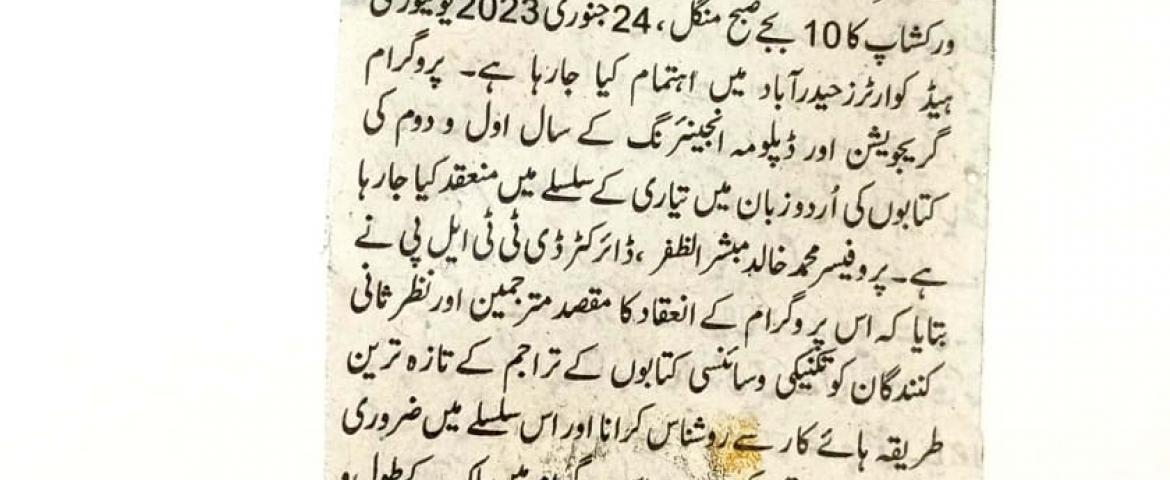 ورکشاپ کا 10 بجے صبح منگل، 24 جنوری 2023 یونیورسٹی
ہیڈ کوارٹرز حیدرآباد میں اہتمام کیا جارہا ہے۔ پروگرام
گریجویشن اور ڈپلومہ انجینئرنگ کے سال اول و دوم کی
کتابوں کی اُردو زبان میں تیاری کے سلسلے میں منعقد کیا جارہا
ہے۔ پروفیسر محمد خالد مبشر الظفر، ڈائرکٹر ڈی ٹی ٹی ایل پی نے
بتایا کہ اس پروگرام کے انعقاد کا مقصد مترجمین اور نظر ثانی
کنندگان کو تکنیکی و سائنسی کتابوں کے تراجم کے تازہ ترین
طریقہ ہائے کار سے روشناس کرانا اور اس سلسلے میں ضروری